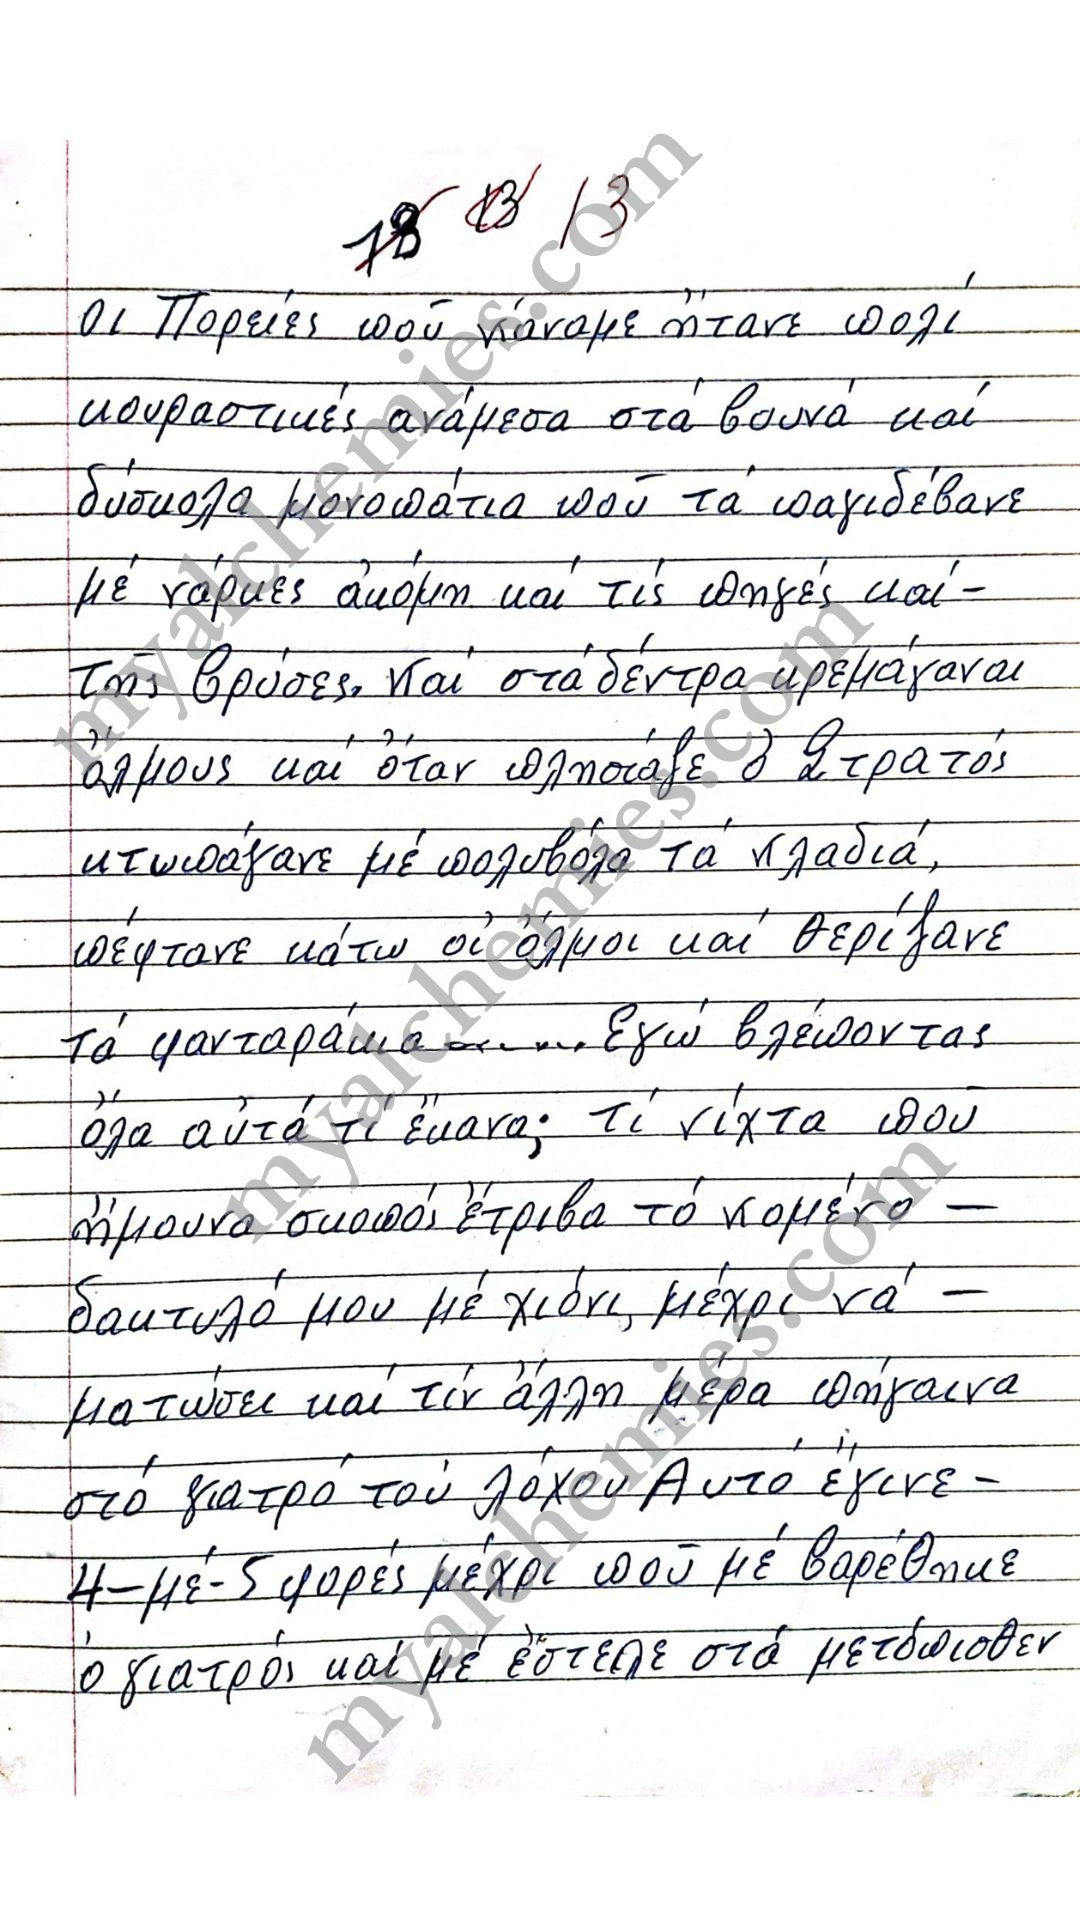 13 13 13
οι Πορείες πού κάναμε ἤτανε πολί
κουραστικές ανάμεσα στά βουνά καί
δύσκολα μονοπάτια πού τά παγιδέβανε
μέ νάρκες ἀκόμη καί τίς πηγές καί-
τῆς βρύσες. καί στά δέντρα κρεμάγαναι
ὅλμους καί ὅταν πλησιάζε ὁ Στρατός
κτωπάγανε μέ πολυβόλο τά κλαδιά,
πέφτανε κάτω οἱ ὅλμοι καί θερίζανε
τά φανταράκια........ Εγώ βλέποντας
ὅλα αὐτά τί ἔκανα; τί νίχτα πού
ἤμουνα σκοπός ἔτριβα τό κομένο —
δακτυλό μου μέ χιόνι, μέχρι νά —
ματώσει καί τίν ἄλλη μέρα πήγαινα
στό γιατρό τού λόχου Αυτό ἔγινε -
4-μέ-5 φορές μέχρι πού μέ βαρέθηκε
ὁ γιατρός καί μέ ἔστειλε στά μετόπισθεν
myalchemies.com
myalchemies.com
myalchemies.com